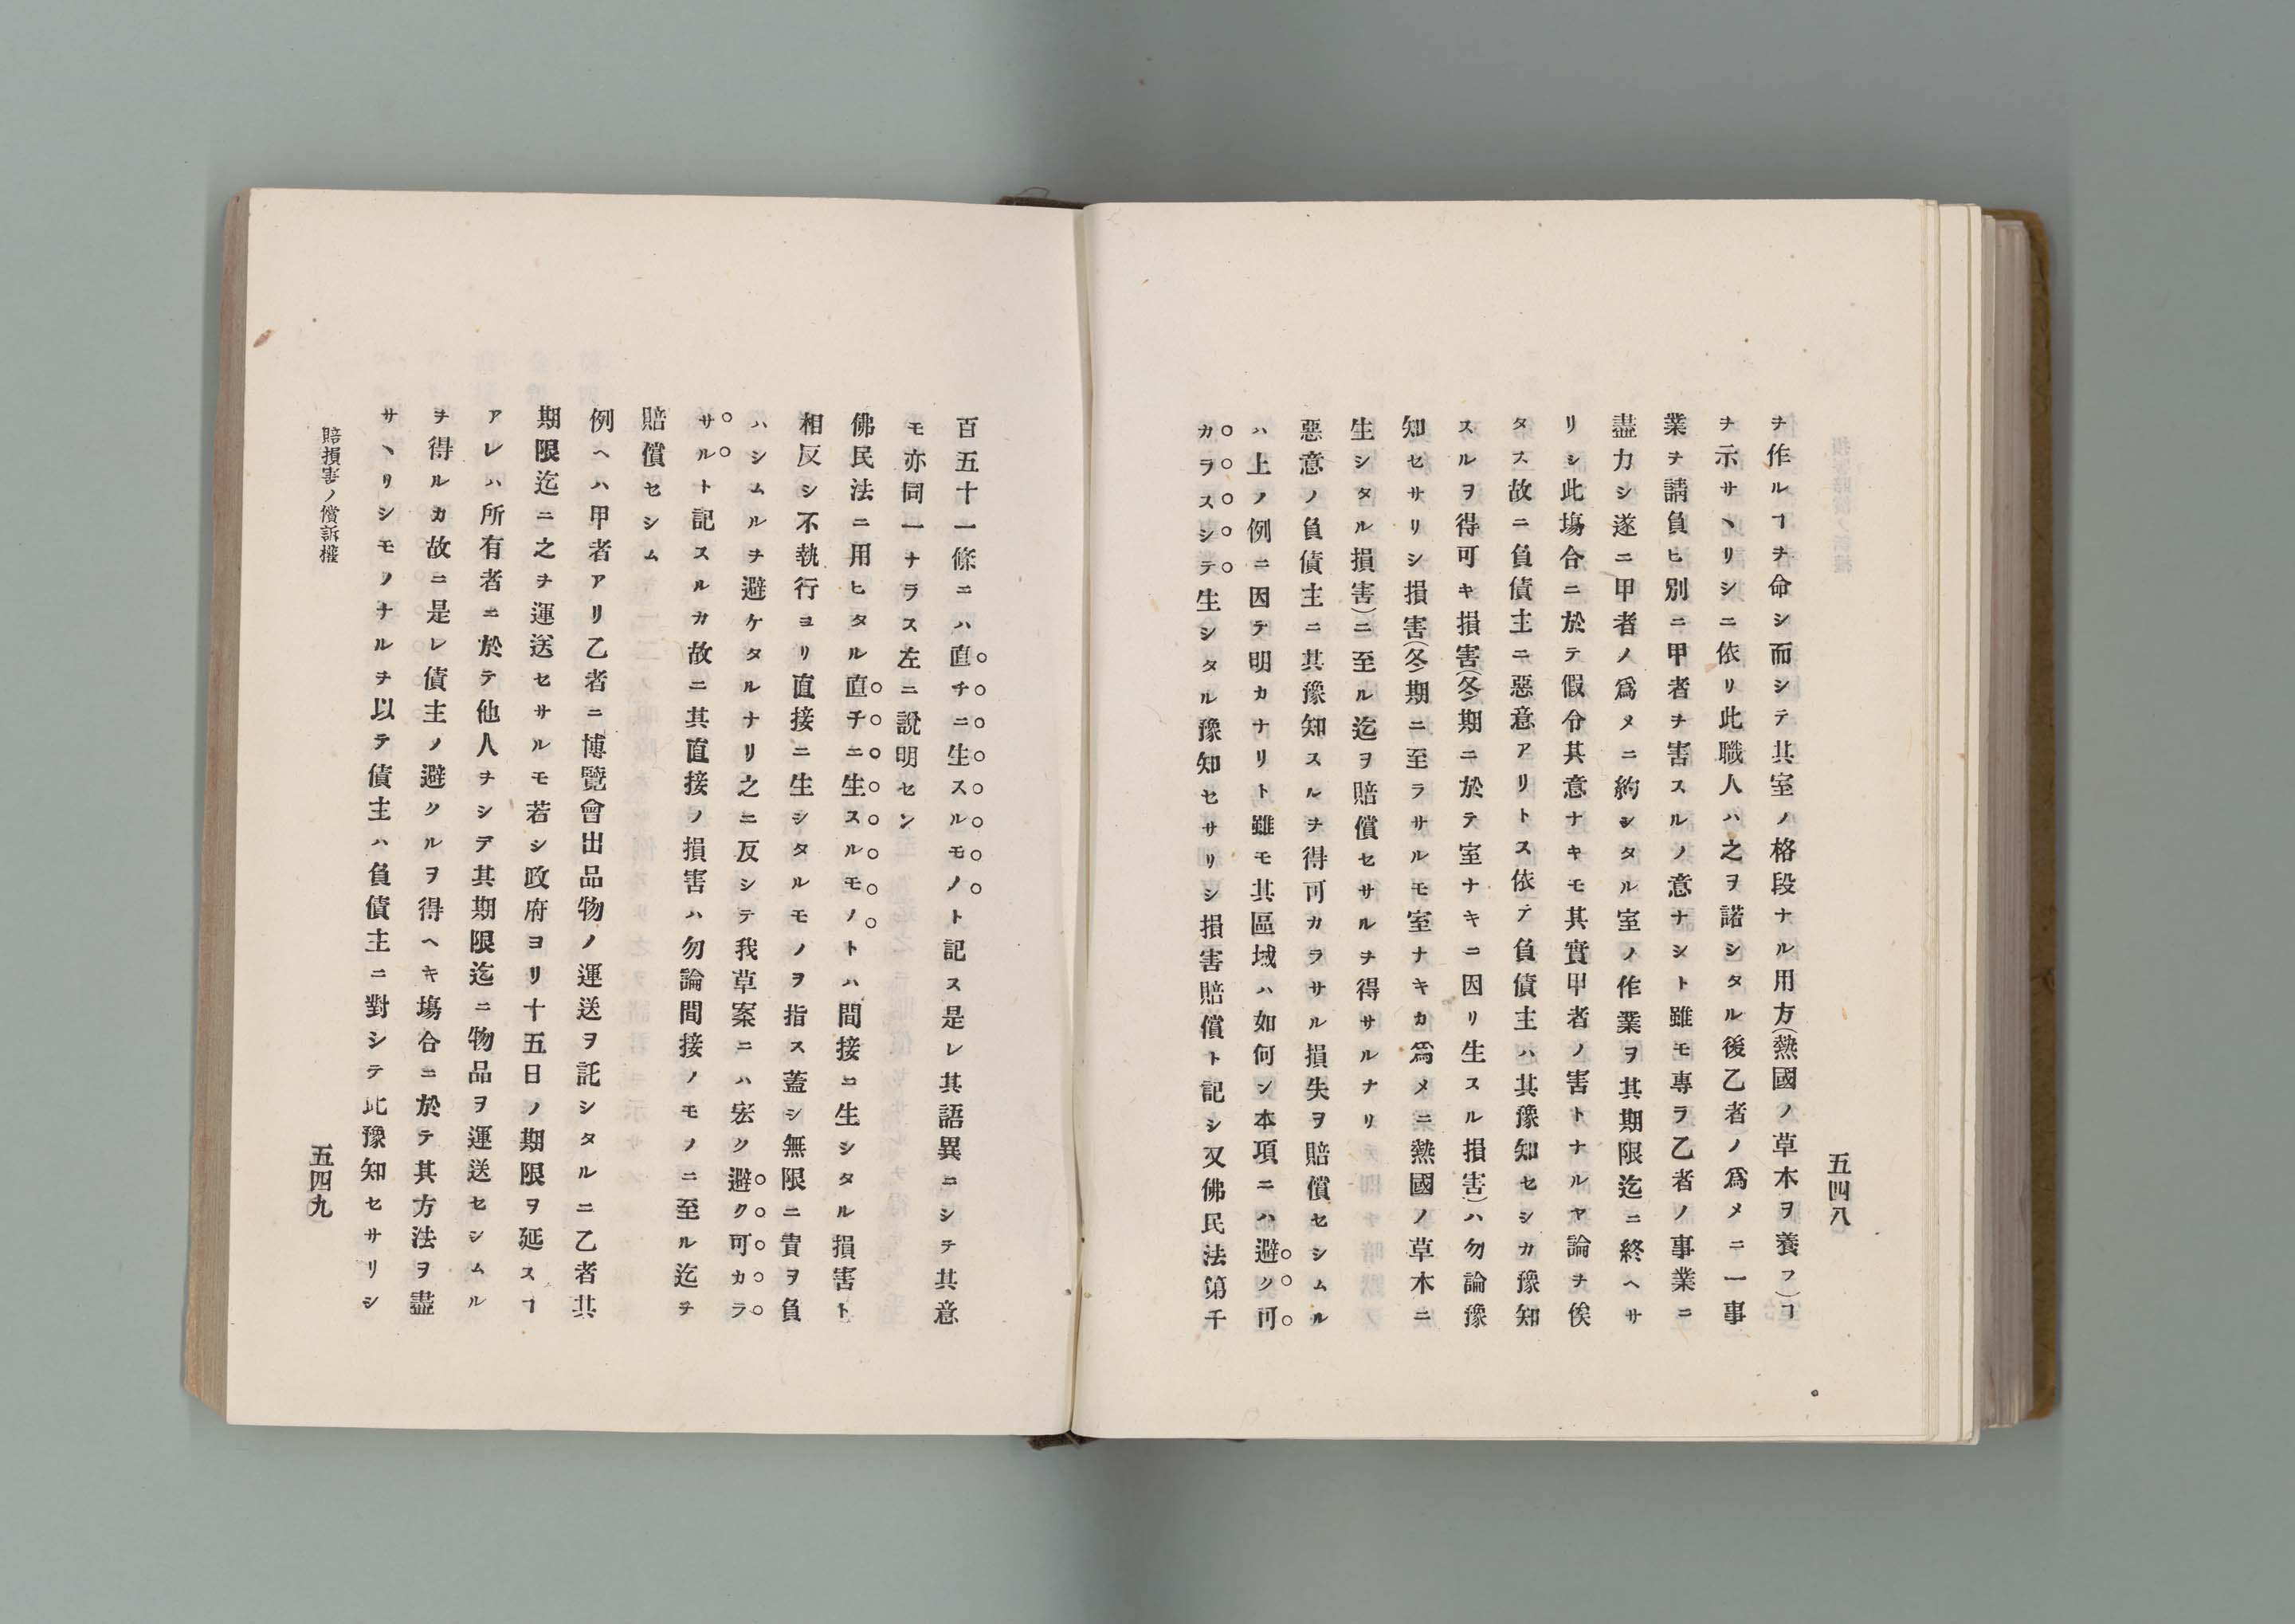 五四八
ヲ作ルヿヲ命シ而シテ其室ノ格段ナル用方(熱國ノ草木ヲ養フ)ヿ
ヲ示サヽリシニ依リ此職人ハ之ヲ諾シタル後乙者ノ爲メニ一事
業ヲ請負ヒ別ニ甲者ヲ害スルノ意ナシト雖モ專ラ乙者ノ事業ニ
盡力シ遂ニ甲者ノ爲メニ約シタル室ノ作業ヲ其期限迄ニ終ヘサ
リシ此塲合ニ於テ假令其意ナキモ其實甲者ノ害トナルヤ論ヲ俟
タス故ニ負債主ニ惡意アリトス依テ負債主ハ其豫知セシカ豫知
スルヲ得可キ損害(冬期ニ於テ室ナキニ因リ生スル損害)ハ勿論豫
知セサリシ損害(冬期ニ至ラサルモ室ナキカ爲メニ熱國ノ草木ニ
生シタル損害)ニ至ル迄ヲ賠償セサルヲ得サルナリ
惡意ノ負債主ニ其豫知スルヲ得可カラサル損失ヲ賠償セシムル
ハ上ノ例ニ因テ明カナリト雖モ其區域ハ如何ン本項ニハ避ク可
カラスシテ生シタル豫知セサリシ損害賠償ト記シ又佛民法第千
百五十一條ニハ直チニ生スルモノト記ス是レ其語異ニシテ其意
モ亦同一ナラス左ニ說明セン
佛民法ニ用ヒタル直チニ生スルモノトハ間接ニ生シタル損害ト
相反シ不執行ヨリ直接ニ生シタルモノヲ指ス蓋シ無限ニ責ヲ負
ハシムルヲ避ケタルナリ之ニ反シテ我草案ニハ宏ク避ク可カラ
サルト記スルカ故ニ其直接ノ損害ハ勿論間接ノモノニ至ル迄ヲ
賠償セシム
例ヘハ甲者アリ乙者ニ博覽會出品物ノ運送ヲ託シタルニ乙者其
期限迄ニ之ヲ運送セサルモ若シ政府ヨリ十五日ノ期限ヲ延スヿ
アレハ所有者ニ於テ他人ヲシテ其期限迄ニ物品ヲ運送セシムル
ヲ得ルカ故ニ是レ債主ノ避クルヲ得ヘキ塲合ニ於テ其方法ヲ盡
サヽリシモノナルヲ以テ債主ハ負債主ニ對シテ此豫知セサリシ
賠損害ノ償訴權
五四九